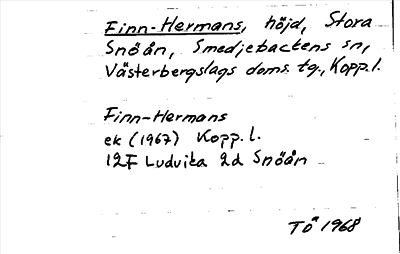 Finn-Hermans, höjd, Stora
Snöån, Smedjebackens sn,
Västerbergslags doms. tg., Kopp.l.
Finn-Hermans
ek (1967) Kopp.l.
12F Ludvika 2d Snöån
TÖ 1968